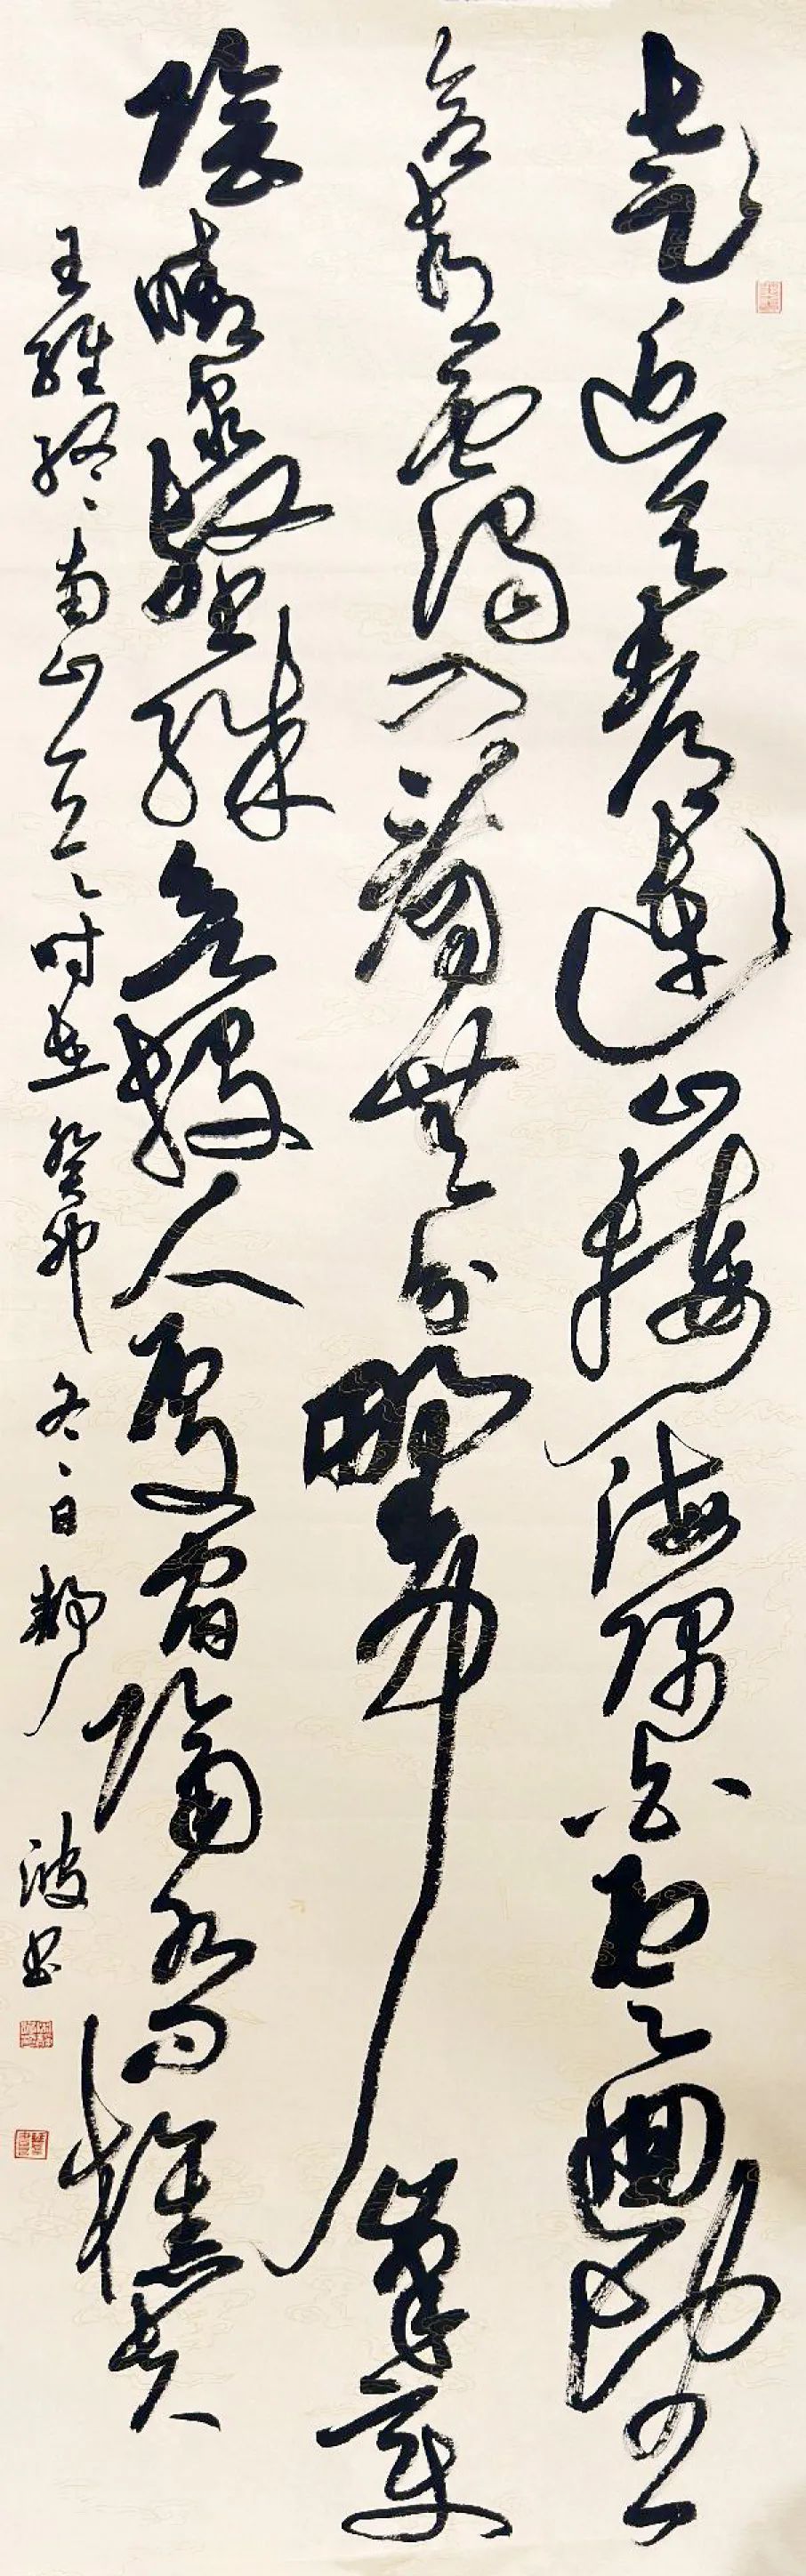 太乙近天都連山接海隅白雲迴望
合青靄入看無分野中峰變
陰晴衆壑殊欲投人處宿隔水問樵夫
王維終南山癸卯冬日靜波書